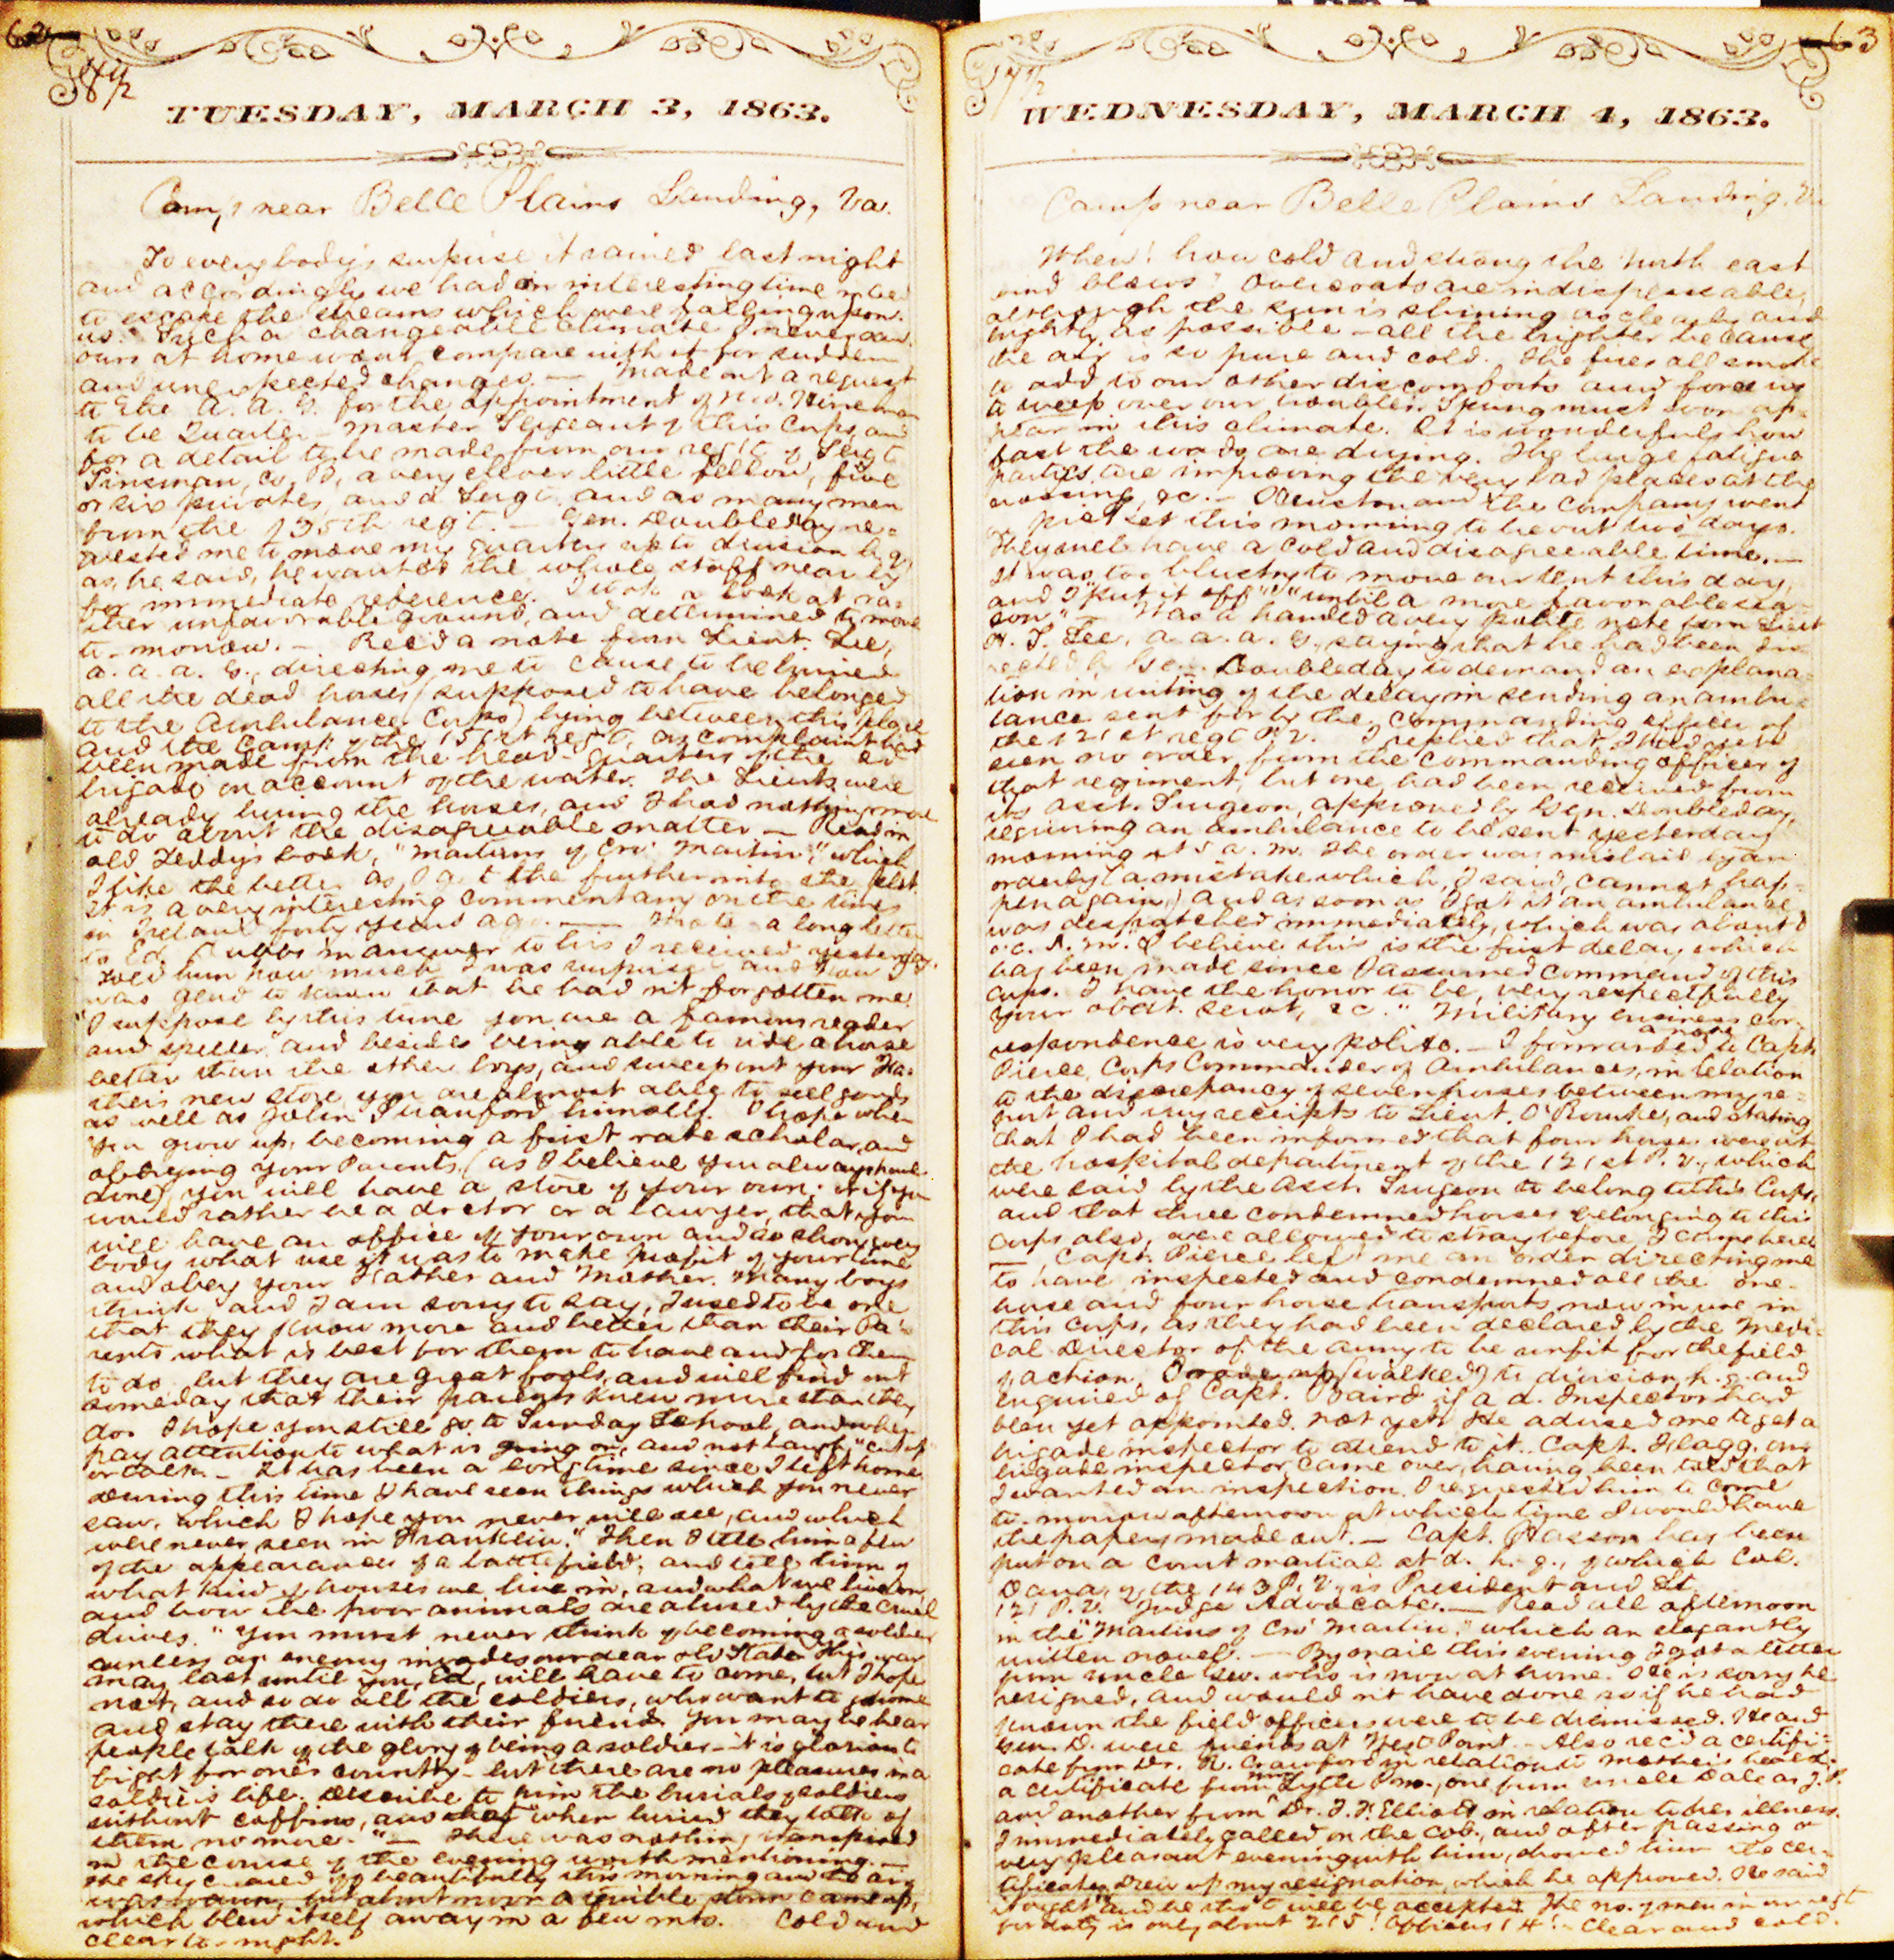 62
TUESDAY, MARCH 3, 1863.
Camp near Belle Plains Landing, Va.
To everybody's surprise it rained last night
and accordingly we had an interesting time in bed
to escape the streams which were falling upon
us. Such a changeable climate I never saw.
ours at home wont compare with it for sudden
and unexpected changes. — Made out a request
to the A. A. G. for the appointment of
to be Quarter-master Sergeant of this Corps, and
for a detail to be made from our regt. of Sergt
Tinsman, Co. B, a very clever little fellow, five
or six privates, and a Sergt. and as many men
from the 135th regt. — Gen. Doubleday re=
quested me to move my quarters up to division h. q.
as, he said, he wanted the whole staff near by
for immediate reference. I took a look at ra=
ther unfavorable ground, and determined to move
to-morrow. — Rec'd a note from Lieut. Lee,
a. a. a. G., directing me to cause to be buried
all the dead horses (supposed to have belonged
to the Ambulance Corps) lying between this place
and the camp of the 151st regt, as complaint had
been made from the head-quarters of the 2d
brigade on account of the water. The Lieuts. were
already burying the horses, and I had nothing more
to do about the disagreeable matter — Read in
old Teddy's book, "Martins of Cro' Martin," which
I like the better as I get the further into the plot.
It is a very interesting commentary on the times
in Ireland forty years ago. — Wrote a long letter
to Ed. Dubbs in answer to his I received yesterday.
Told him how much I was surprised and how I
was glad to know that he had n't forgotten me.
"I suppose by this time you are a famous reader
and speller" and besides being able to ride a horse
better than the other boys, and sweep out your Fa=
ther's new store you are almost able to sell goods
as well as John himself. I hope when
you grow up, becoming a first rate scholar, and
obeying your Parents, (as I believe you always have
done), you will have a store of your own; or if you
would rather be a doctor or a lawyer, that you
will have an office of your own and so show every
body what use it was to make profit of your time
and obey your Father and Mother. Many boys
think and I am sorry to say, I used to be one
that they know more and better than their Pa=
rents what is best for them to have and for them
to do. but they are great fools, and will find out
someday that their parents knew more than they
do. I hope you still go to Sunday School, and when
pay attention to what is going on, and not laugh, "cut up"
or talk. — It has been a long time since I left home.
During this time I have seen things which you never
saw, which I hope you never will see, and which
were never seen in Franklin." Then I tell him a few
of the appearances of a battlefield; and tell him of
what kind of houses we live in, and what we live on,
and how the poor animals are abused by the cruel
drivers. "You must never think of becoming a soldier
unless an enemy invades our dear old State. This war
may last until you, Ed, will have to come, but I hope
not, and so do all the soldiers, who want to go home
and stay there with their friends. You may hear
people talk of the glory of being a soldier — it is glorious to
fight for one's country — but there are no pleasures in a
soldier's life. Describe to him the burials of soldiers
without coffins, and that "when buried they talk of
them no more." — There was nothing transpired
in the course of the evening worth mentioning. —
The sky cleared up beautifully this morning and the air
was warm, but about noon a terrible storm came up,
which blew itself away in a few mts. Cold and
clear to-night.
63
WEDNESDAY, MARCH 4, 1863.
Camp near Belle Plains Landing, Va
Whew! how cold and strong the north east
wind blows! Overcoats are indispensable,
although the sun is shining as clearly and
brightly as possible — all the brighter because
the air is so pure and cold. The fires all smoke
to add to our other discomforts and force us
to weep over our troubles. Spring must soon ap=
pear in this climate. It is wonderful how
fast the roads are drying. The large fatigue
parties are improving the very bad places at the
crossing, &c. — and the company went
on picket this morning to be out two days.
They will have a cold and disagreeable time. —
It was too blustry to move our tent this day,
and I "put it off" "until a more favorable sea=
son" — Was handed a very polite note from Lieut
H. T. Lee, a. a. a. G., saying that he had been di=
rected by Gen. Doubleday to demand an explana=
tion in writing of the delay in sending an ambu=
lance sent for by the commanding officer of
the 121st regt P. V. I replied that I had
seen no order from the commanding officer of
that regiment, but one had been received from
its Asst. Surgeon, approved by Gen. Doubleday,
requiring an ambulance to be sent yesterday
morning at 5 a. m. The order was mislaid by an
orderly (a mistake which, I said, cannot hap=
pen again,) and as soon as I got it an ambulance
was despatched immediately, which was about 8
o.c. A. M. "I believe this is the first delay which
has been made since I assumed command of this
Corps. I have the honor to be, very respectfully
your obdt. servt, &c." Military business cor=
respondence is very polite. — I forwarded a note to Capt.
Pierce, Corps Commander of Ambulances, in relation
to the discrepancy of seven horses between my re=
port and my receipts to Lieut. O'Rourke, and stating
that I had been informed that four horses were at
the hospital department of the 121st P. V., which
were said by the Asst. Surgeon to belong to this Corps,
and that three condemned horses belonging to this
corps also, were allowed to stray before I came here.
— Capt. Pierce left me an order directing me
to have inspected and condemned all the one-
horse and four horse transports now in use in
this Corps, as they had been declared by the Medi=
cal Director of the Army to be unfit for the field
of action. I rode up (walked) to division h. q. and
enquired of Capt. Baird if a d. Inspector had
been yet appointed. Not yet. He advised me to get a
brigade inspector to attend to it. Capt. Flagg, our
brigade inspector, came over, having been told that
I wanted an inspection. I requested him to come
to-morrow afternoon at which time I would have
the papers made out. — Capt. Hasson has been
put on a court martial at d. h. q., of which Col.
Dana, of the 143 P. V., is President and Lt
121 P. V. Judge Advocate. — Read all afternoon
in the "Martins of Cro' Martin," which an elegantly
written novel. — By mail this evening I got a letter
from uncle Geo. who is now at home. He is sorry he
resigned, and would n't have done so if he had
known the field officers were to be dismissed. He and
Gen D. were friends at West Point. — Also rec'd a certifi=
cate from Dr. R. Crawford in relation to mother's health.
a certificate from Lytle P.M., one from uncle Dale as J. P.
and another from Dr. J. F. Elliott in relation to her illness.
I immediately called on the Col., and after passing a
very pleasant evening with him, showed him the cer=
tificates. Drew up my resignation, which he approved. He said
"all right" and he that it will be accepted. The no. of men in our regt
for duty is only about 215! Officers 14! — Clear and cold.